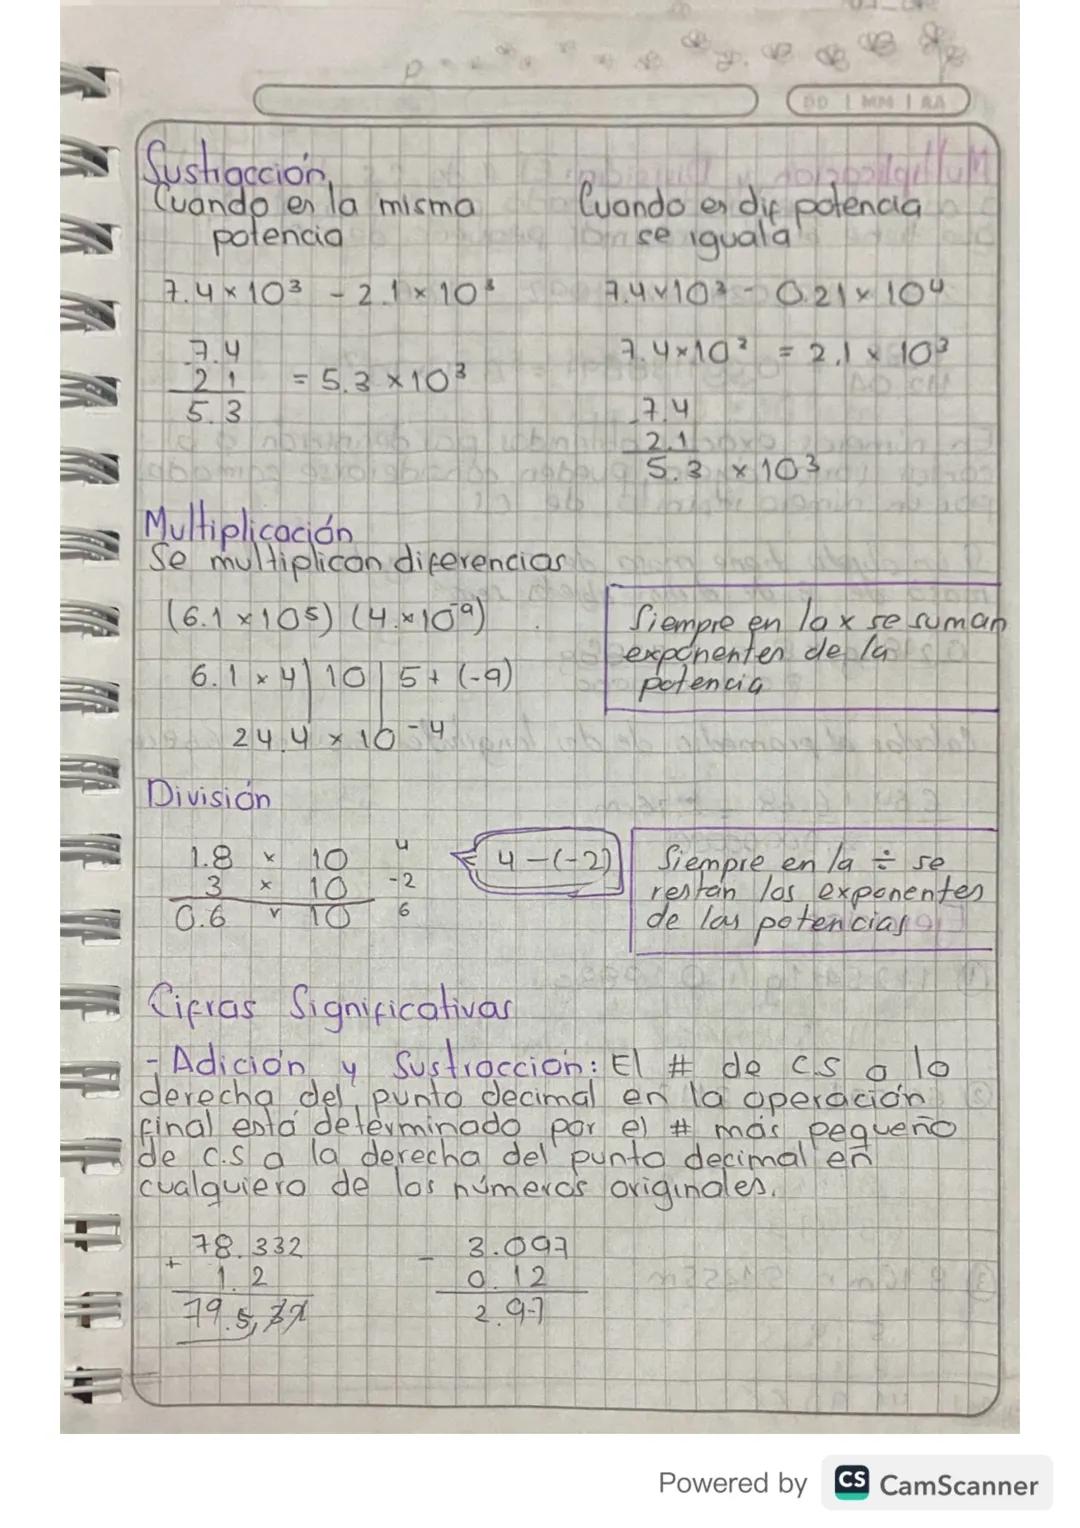 DD | MM | AA
Sustracción
Cuando es la misma
potencia
7.4 × 10³ - 2.1 × 10³
7.4
2 1 = 5.3 × 10³
5.3
Cuando es dif potencia
se iguala
7.4 × 10³ - 0.21 × 10⁴
7.4 × 10³ = 2.1 × 10³
-7.4
2.1
5.3 × 10³
Multiplicación
Se multiplican diferencias
(6.1 × 10⁵) (4 × 10⁻⁹)
6.1 × 4 | 10 | 5 + (-9)
24.4 × 10⁻⁴
Siempre en la x se suman
exponentes de la
potencia
División
1.8 × 10 4
3 × 10 -2
0.6 × 10 6
4 - (-2)
Siempre en la ÷ se
restan los exponentes
de las potencias
Cifras Significativas
- Adición y Sustracción: El # de CS a la
derecha del punto decimal en la operación
final está determinado por el # más pequeño
de c.s a la derecha del punto decimal en
cualquiera de los números originales.
78.332
+ 1.2
79.5,32
- 3.097
0.12
2.97
Powered by CS CamScanner